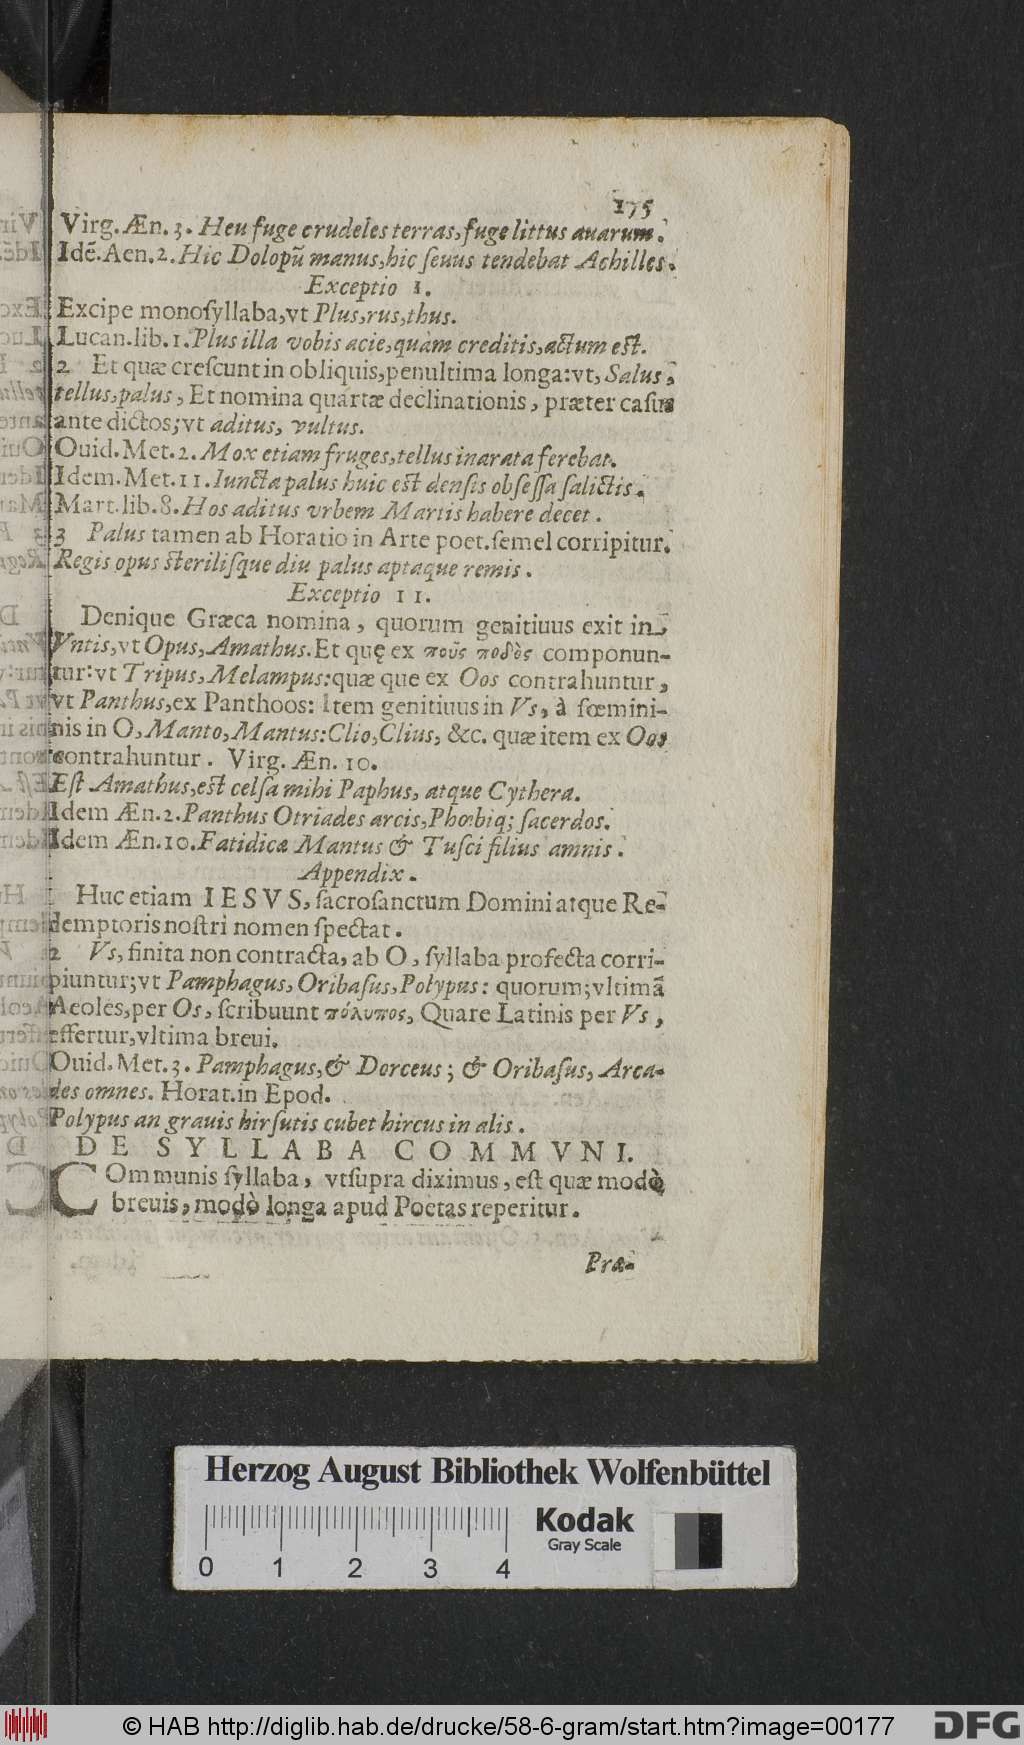 175
Virg. Æn. 3. Heu fuge crudeles terras, fuge littus auarum.
Idē. Aen. 2. Hic Dolopū manus, hic ſeuus tendebat Achilles.
Exceptio 1.
Excipe monoſyllaba, vt Plus, rus, thus.
Lucan. lib. 1. Plus illa vobis acie, quam creditis, actum eſt.
2 Et quæ creſcunt in obliquis, penultima longa: vt, Salus,
tellus, palus, Et nomina quartæ declinationis, præter caſus
ante dictos; vt aditus, vultus.
Ouid. Met. 2. Mox etiam fruges, tellus inarata ferebat.
Idem. Met. 11. Iuncta palus huic eſt denſis obſeſſa ſalictis.
Mart. lib. 8. Hos aditus vrbem Martis habere decet.
3 Palus tamen ab Horatio in Arte poet. ſemel corripitur.
Regis opus ſteriliſque diu palus aptaque remis.
Exceptio 11.
Denique Græca nomina, quorum genitiuus exit in
Vntis, vt Opus, Amathus. Et quę ex ποῦς ποδὸς componun-
tur: vt Tripus, Melampus: quæ que ex Oos contrahuntur,
vt Panthus, ex Panthoos: Item genitiuus in Vs, à fœmini-
nis in O, Manto, Mantus: Clio, Clius, &c. quæ item ex Oos
contrahuntur. Virg. Æn. 10.
Eſt Amathus, eſt celſa mihi Paphus, atque Cythera.
Idem Æn. 2. Panthus Otriades arcis, Phœbiq; ſacerdos.
Idem Æn. 10. Fatidicæ Mantus & Tuſci filius amnis.
Appendix.
1 Huc etiam IESVS, ſacroſanctum Domini atque Re-
demptoris noſtri nomen ſpectat.
2 Vs, finita non contracta, ab O, ſyllaba profecta corri-
piuntur; vt Pamphagus, Oribaſus, Polypus: quorum; vltimā
Aeoles, per Os, ſcribuunt πόλυπος, Quare Latinis per Vs,
effertur, vltima breui.
Ouid. Met. 3. Pamphagus, & Dorceus; & Oribaſus, Arca-
des omnes. Horat. in Epod.
Polypus an grauis hirſutis cubet hircus in alis.
DE SYLLABA COMMVNI.
COmmunis ſyllaba, vt ſupra diximus, eſt quæ modò
breuis, modò longa apud Poetas reperitur.
Præ-
Herzog August Bibliothek Wolfenbüttel
0 1 2 3 4
Kodak
Gray Scale
© HAB http://diglib.hab.de/drucke/58-6-gram/start.htm?image=00177
DFG